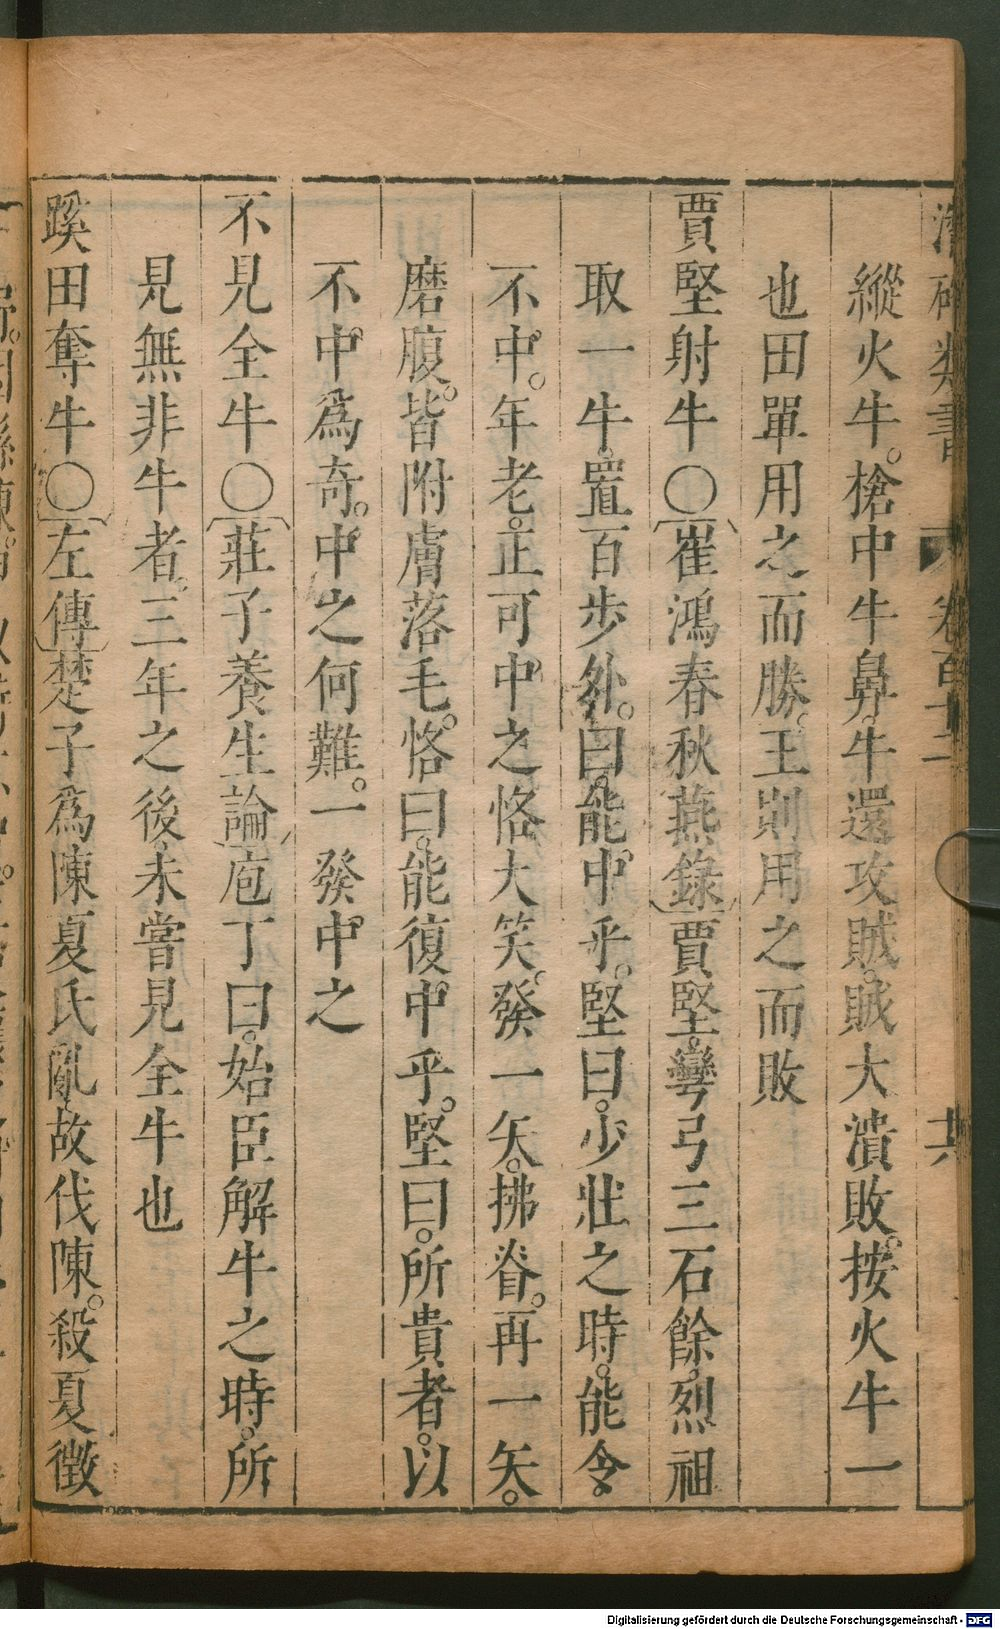 潛確類書 卷百十一 共
縱火牛。槍中牛鼻。牛還攻賊。賊大潰敗。按火牛一
也田單用之而勝。王則用之而敗
賈堅射牛〇崔鴻春秋燕錄賈堅。彎弓三石餘。烈祖
取一牛。置百步外。曰。能中乎。堅曰。少壯之時。能令
不中。年老。正可中之恪大笑。發一矢。拂脊。再一矢。
磨腹。皆附膚落毛。恪曰。能復中乎。堅曰。所貴者。以
不中爲奇。中之何難。一發中之
不見全牛〇莊子養生論庖丁曰。始臣解牛之時。所
見無非牛者。三年之後。未嘗見全牛也
蹊田奪牛〇左傳楚子爲陳夏氏亂。故伐陳。殺夏徵
Digitalisierung gefördert durch die Deutsche Forschungsgemeinschaft - DFG